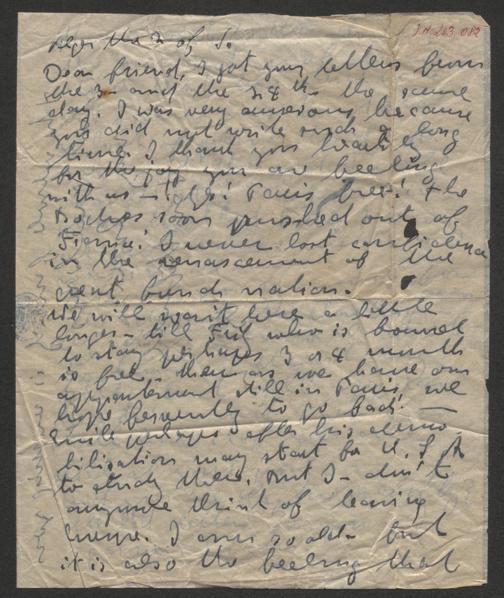 JH 263 012
the 2 of, S.
Dear friend, I got your letters from
the 3- and the 24th- the same
day. I was very anxious because
you did not write such a long
time. I thank you heartily
for the joy you are feeling
with us - Paris free! The
Boches soon pushed out of
France! I never lost confidence
in the renascement of the
great french nation.
We will wait here a little
longer - till who is bound
to stay perhaps 3 or 4 month
is free - then as we have our
appartement still in Paris, we
hope fervently to go back. -
Emile perhaps after his demo-
bilisation may start for U.S.A
to study there. But I - don't
anymore think of leaving
Europe. I am so old - but
it is also the feeling that